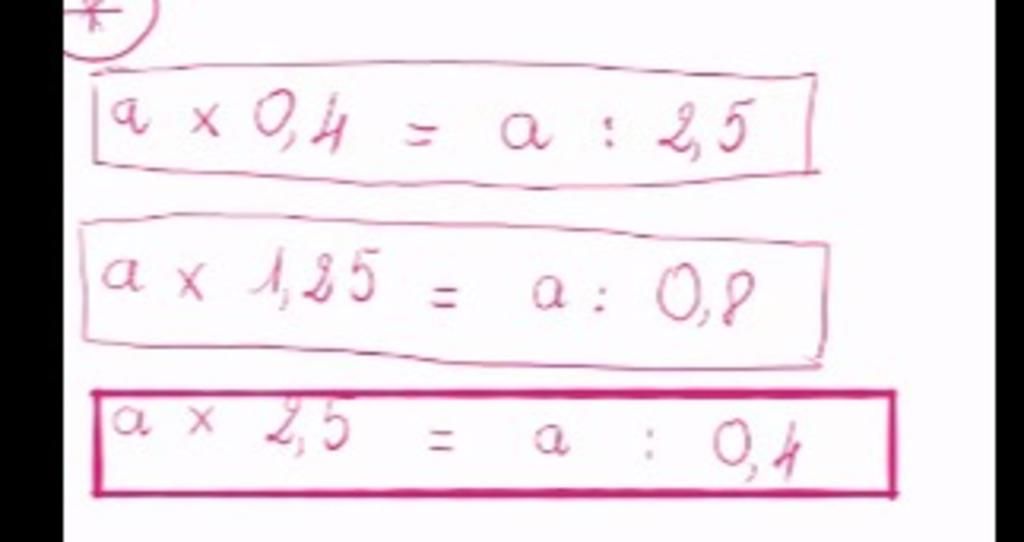 *
a x 0,4 = a : 2,5
a x 1,25 = a : 0,8
a x 2,5 = a : 0,4